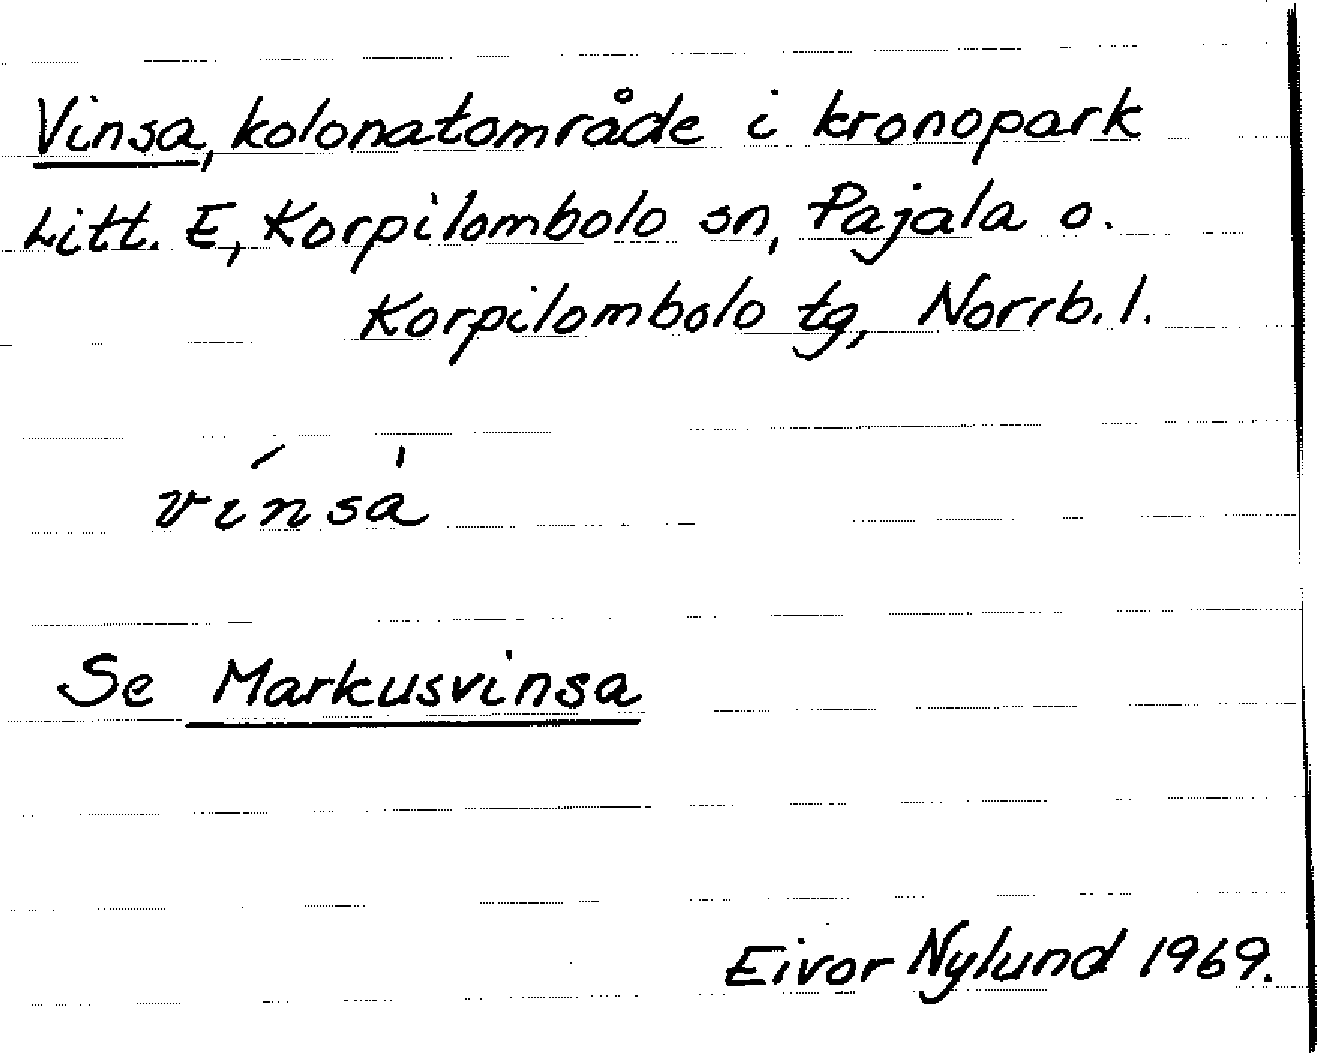 Vinsa, kolonatområde i kronopark
Litt. E, Korpilombolo sn, Pajala o.
Korpilombolo tg, Norrb. l.
vínsà
Se Markusvinsa
Eivor Nylund 1969.